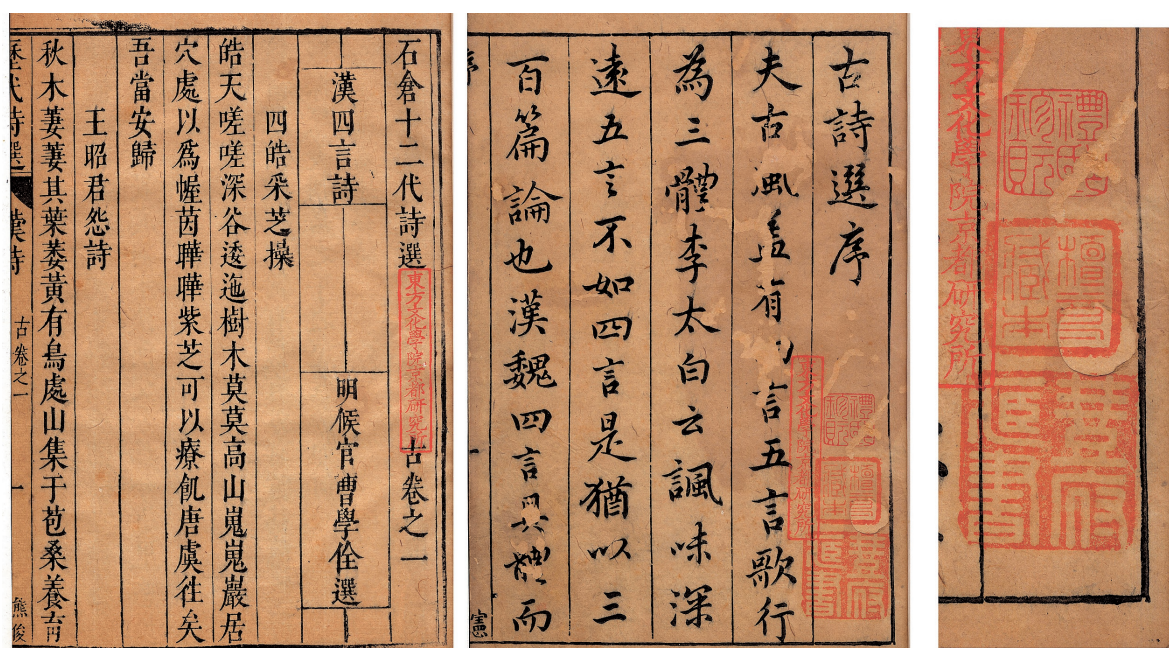 石倉十二代詩選
古卷之一
東方文化學院京都研究所
漢四言詩
明候官曹學佺選
四皓采芝操
皓天嗟嗟深谷逶迤樹木莫莫高山嵬嵬巖居
穴處以爲幄茵曄曄紫芝可以療飢唐虞徃矣
吾當安歸
王昭君怨詩
秋木萋萋其葉萎黃有鳥處山集于苞桑養育
歷代詩選
漢詩
古卷之一
一
熊俊
古詩選序
夫古風盖有四言五言歌行
為三體李太白云諷味深
遠五言不如四言是猶以三
百篇論也漢魏四言具體而
序
一
憲
東方文化學院京都研究所
東方文化學院京都研究所
藏本
藏書